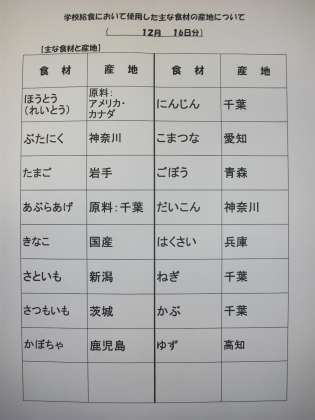 学校給食において使用した主な食材の産地について
( 12月 16日分)
[主な食材と産地]
食材 産地 食材 産地
ほうとう(れいとう) 原料:アメリカ・カナダ にんじん 千葉
ぶたにく 神奈川 こまつな 愛知
たまご 岩手 ごぼう 青森
あぶらあげ 原料:千葉 だいこん 神奈川
きなこ 国産 はくさい 兵庫
さといも 新潟 ねぎ 千葉
さつもいも 茨城 かぶ 千葉
かぼちゃ 鹿児島 ゆず 高知